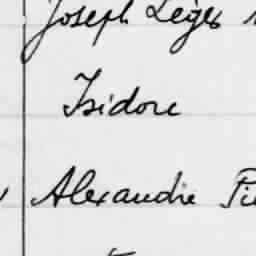 Joseph Léger
Isidore
Alexandre